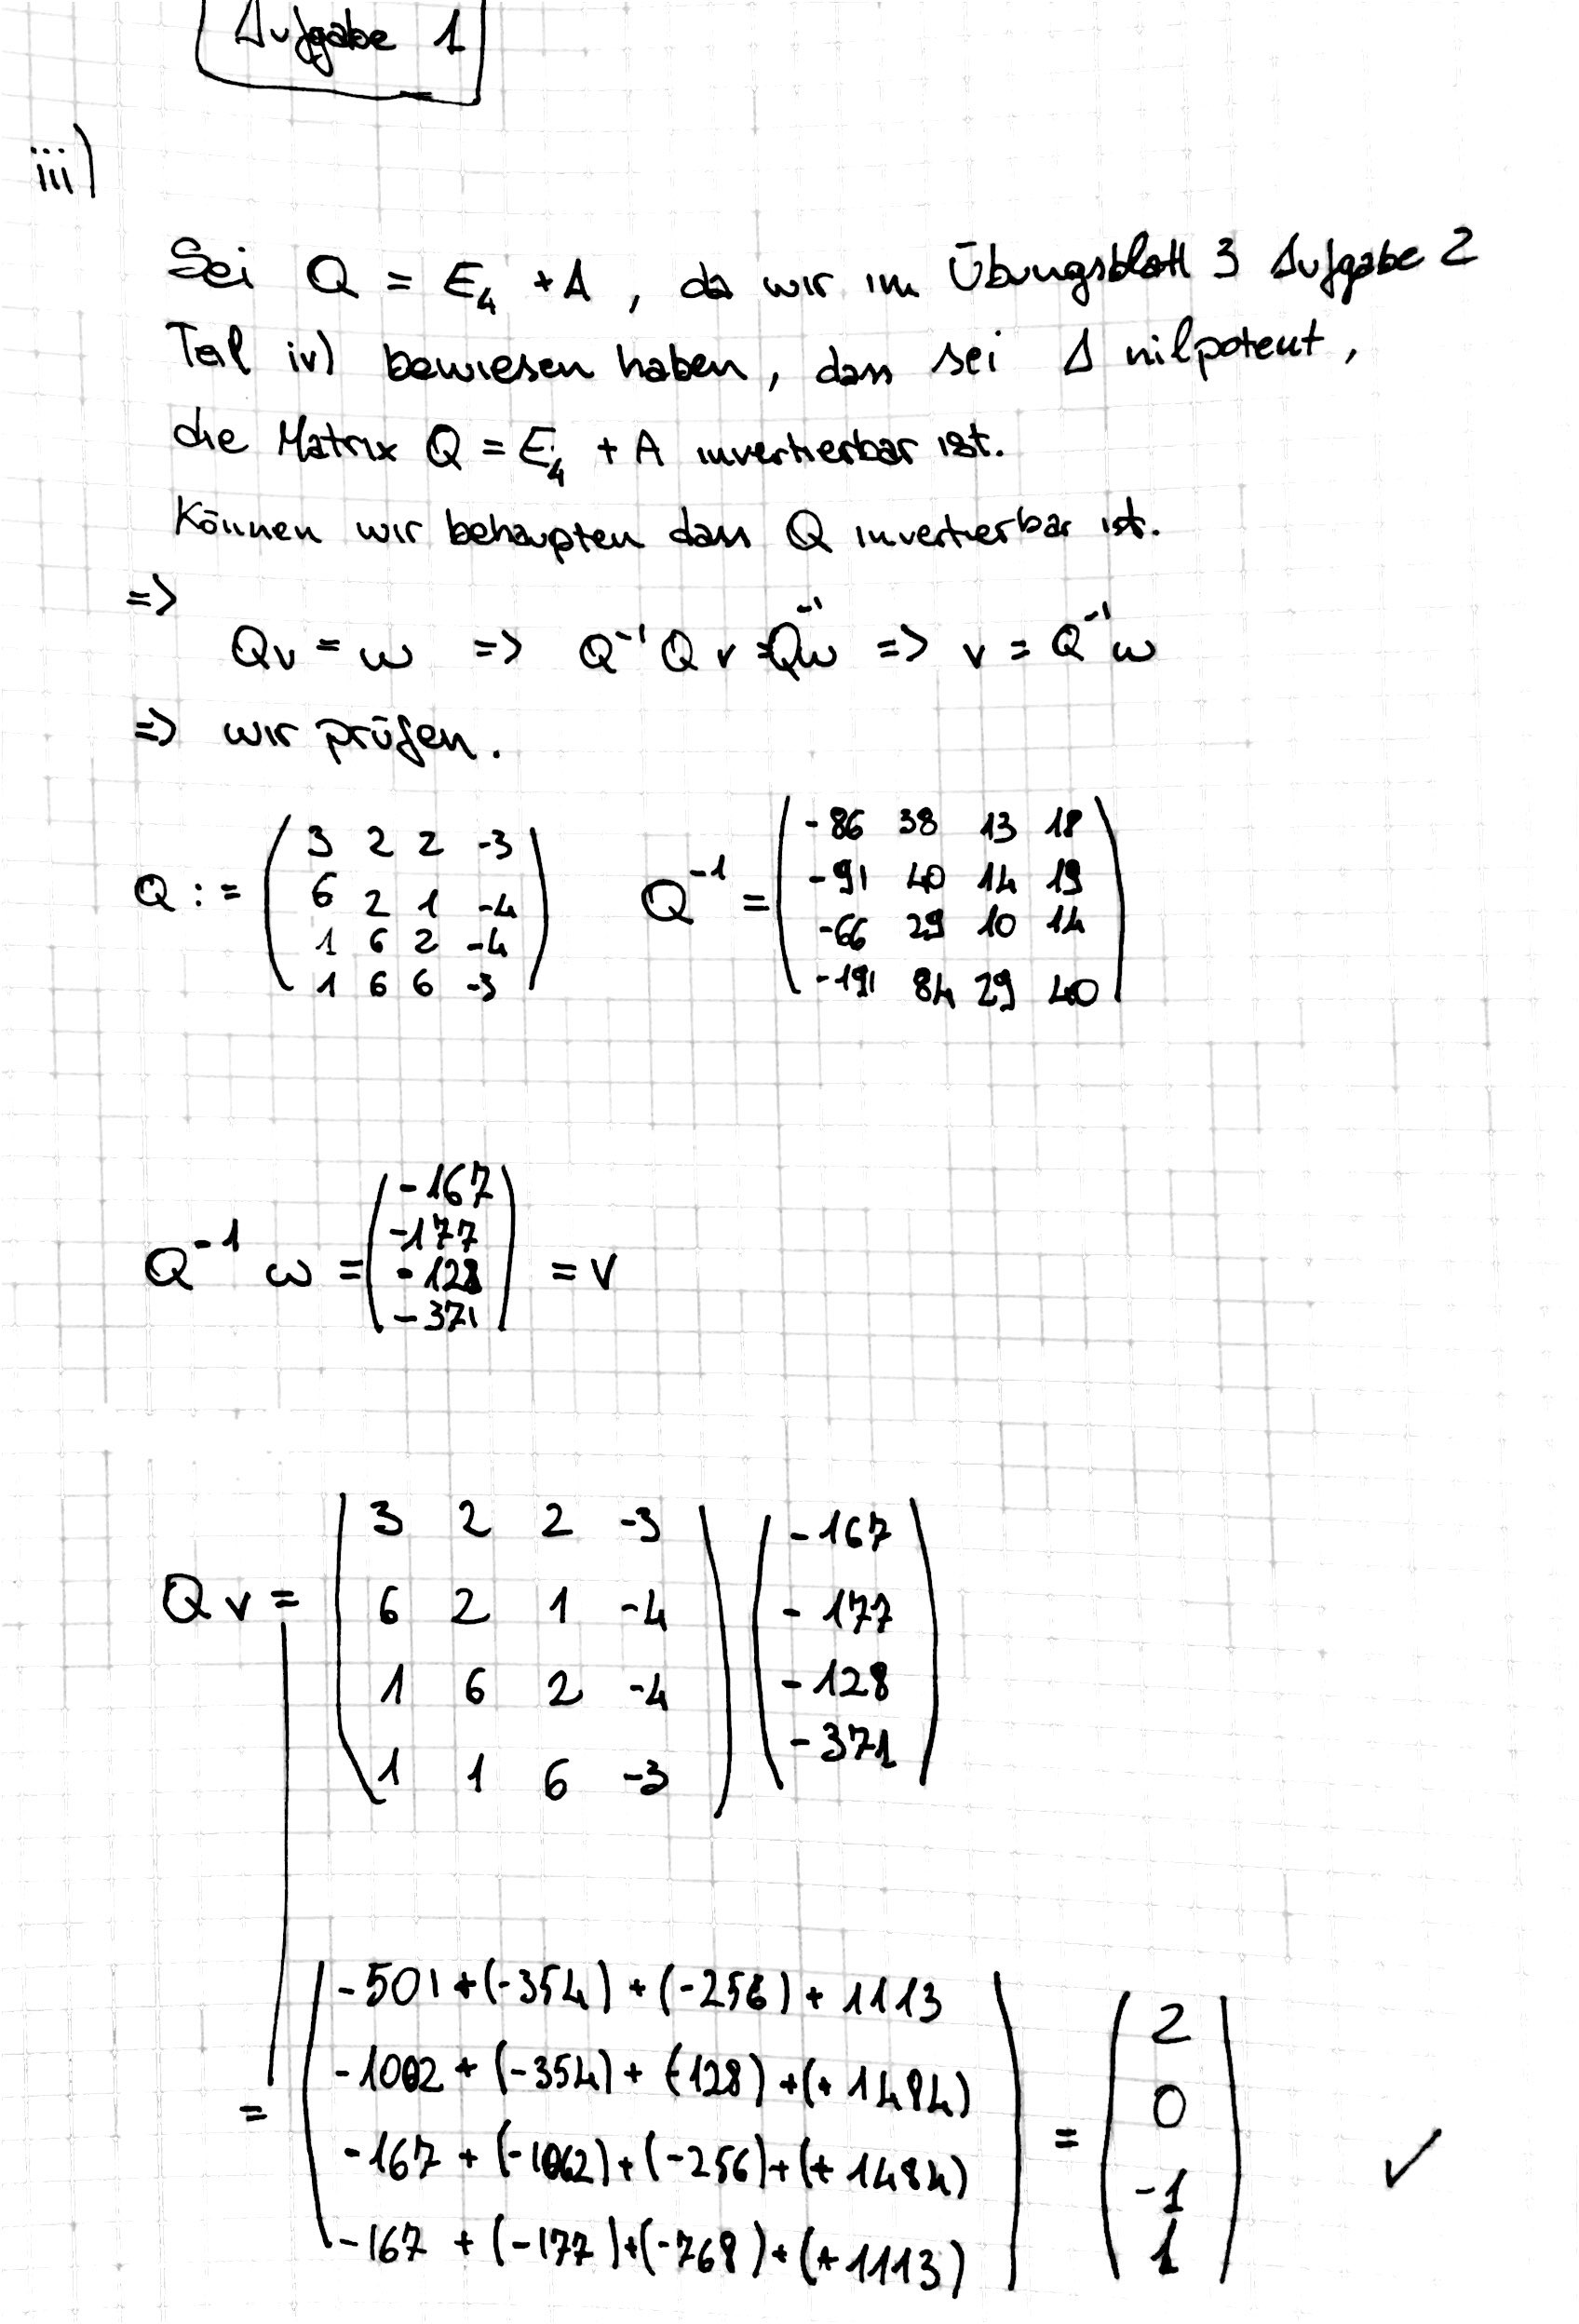 Aufgabe 1
iii)
Sei Q = E₄ + A, da wir im Übungsblatt 3 Aufgabe 2
Teil iv) bewiesen haben, dass sei A nilpotent,
die Matrix Q = E₄ + A invertierbar ist.
Können wir behaupten dass Q invertierbar ist.
=>
Qv = ω => Q⁻¹Qv = Q⁻¹ω => v = Q⁻¹ω
=> wir prüfen.
Q := ( 3 2 2 -3 ) Q⁻¹ = ( -86 38 13 18 )
( 6 2 1 -4 ) ( -91 40 14 19 )
( 1 6 2 -4 ) ( -66 29 10 14 )
( 1 6 6 -3 ) ( -191 84 29 40 )
Q⁻¹ ω = ( -167 ) = v
( -177 )
( -128 )
( -371 )
Qv = ( 3 2 2 -3 ) ( -167 )
( 6 2 1 -4 ) ( -177 )
( 1 6 2 -4 ) ( -128 )
( 1 1 6 -3 ) ( -371 )
= ( -501 + (-354) + (-256) + 1113 ) = ( 2 )
( -1002 + (-354) + (-128) + (+1484) ) ( 0 )
( -167 + (-1062) + (-256) + (+1484) ) ( -1 ) ✓
( -167 + (-177) + (-768) + (+1113) ) ( 1 )